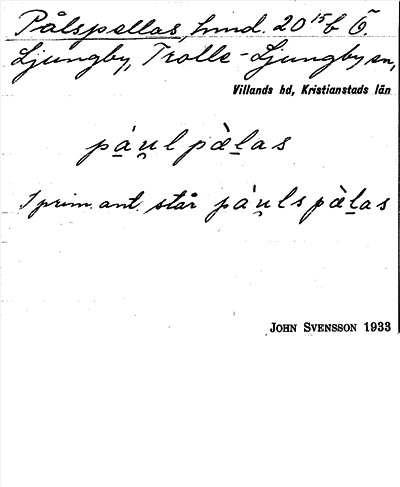 Pålspellas, hmd. 20 15/b Ö.
Ljungby, Trolle-Ljungby sn,
Villands hd, Kristianstads län
pá̱u̯l pæ̀ḻas
I prim. ant. står pàu̯ls pæ̀ḻas
JOHN SVENSSON 1933